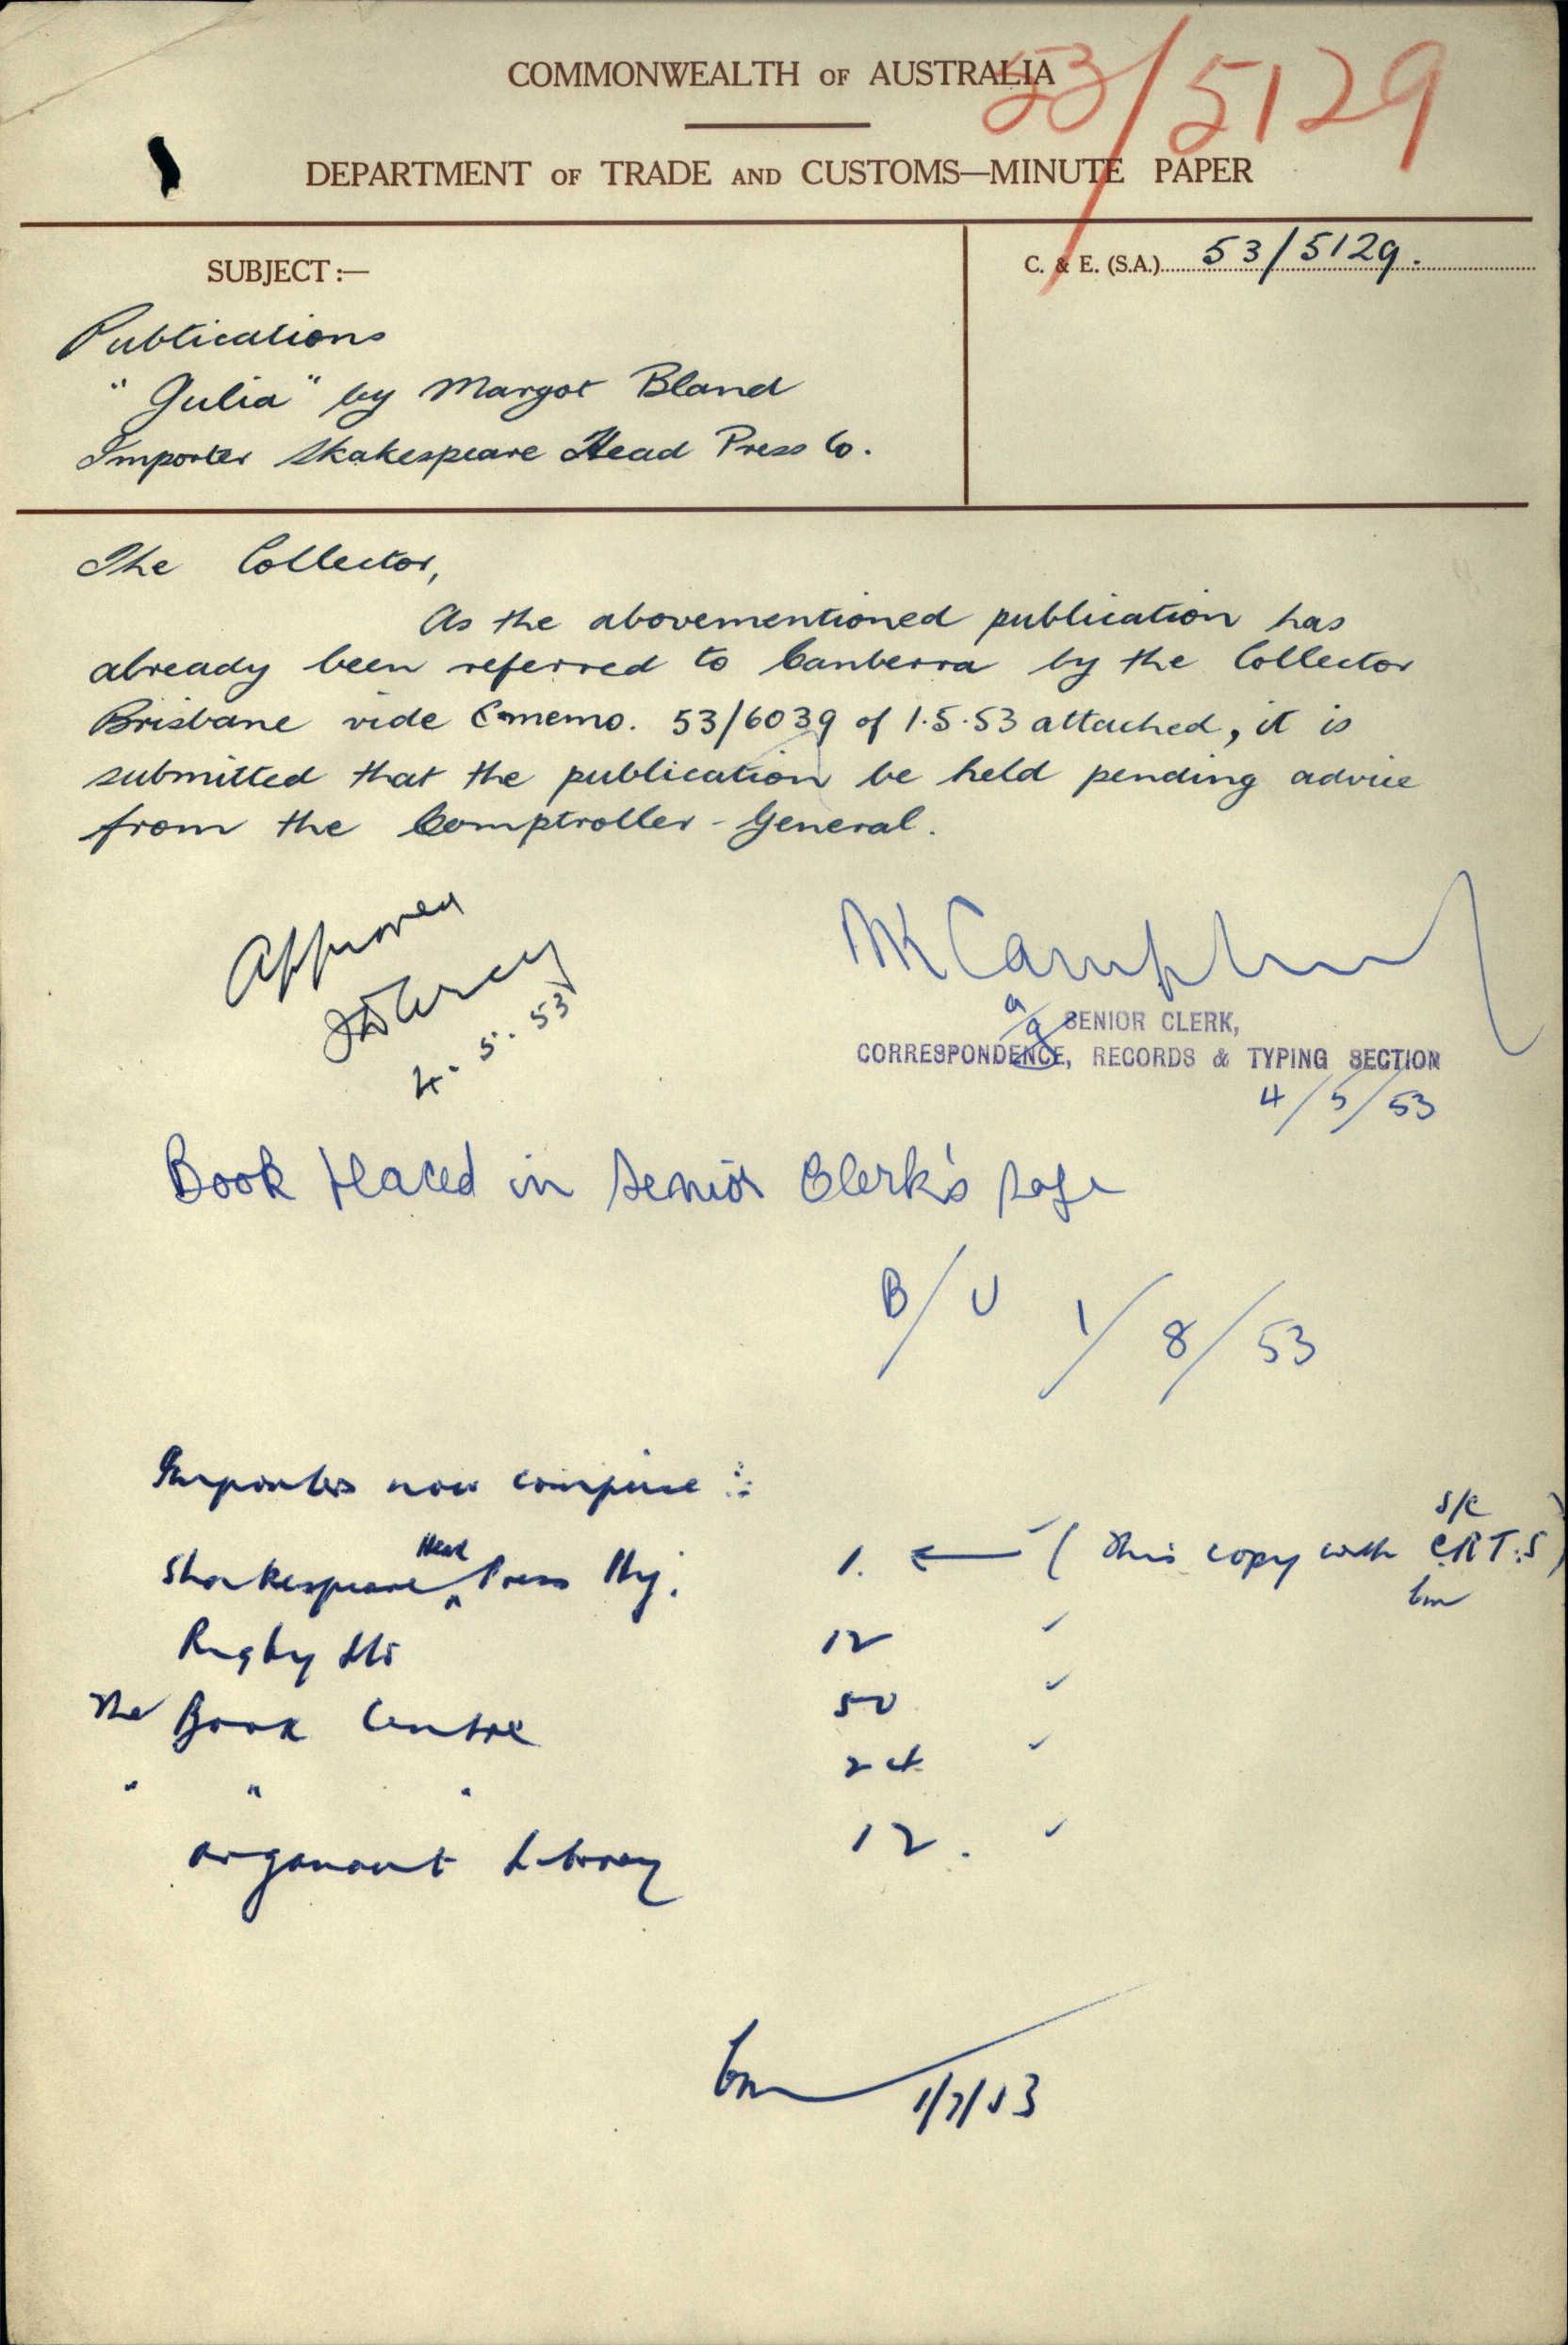 53/5129
COMMONWEALTH OF AUSTRALIA
DEPARTMENT OF TRADE AND CUSTOMS—MINUTE PAPER
SUBJECT:—
C. & E. (S.A.) 53/5129.
Publications
"Julia" by Margot Bland
Importer Shakespeare Head Press Co.
The Collector,
As the abovementioned publication has
already been referred to Canberra by the Collector
Brisbane vide C memo. 53/6039 of 1.5.53 attached, it is
submitted that the publication be held pending advice
from the Comptroller-General.
Approved
4.5.53
MK Campbell
a/g SENIOR CLERK,
CORRESPONDENCE, RECORDS & TYPING SECTION
4/5/53
Book placed in Senior Clerk's safe
B/U 1/8/53
Importers now comprise :-
Shakespeare Head Press Pty. 1. ← (This copy with S/C C.R.T.S)
Rigby Ltd 12 ✓
The Book Centre 50 ✓
" " " 24 ✓
Argonaut Library 12. ✓
1/7/53